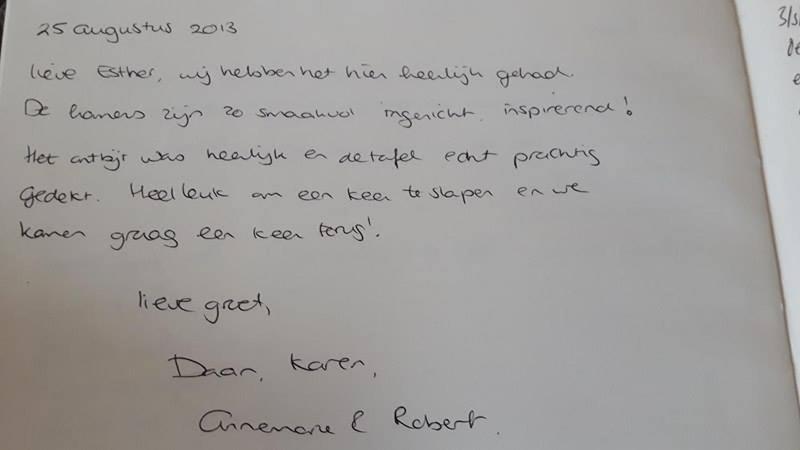 25 augustus 2013
lieve Esther, wij hebben het hier heerlijk gehad.
De kamers zijn zo smaakvol ingericht, inspirerend!
Het ontbijt was heerlijk en de tafel echt prachtig
gedekt. Heel leuk om een keer te slapen en we
komen graag een keer terug!
lieve groet,
Daan, Karen,
Annemarie & Robert.
3/5